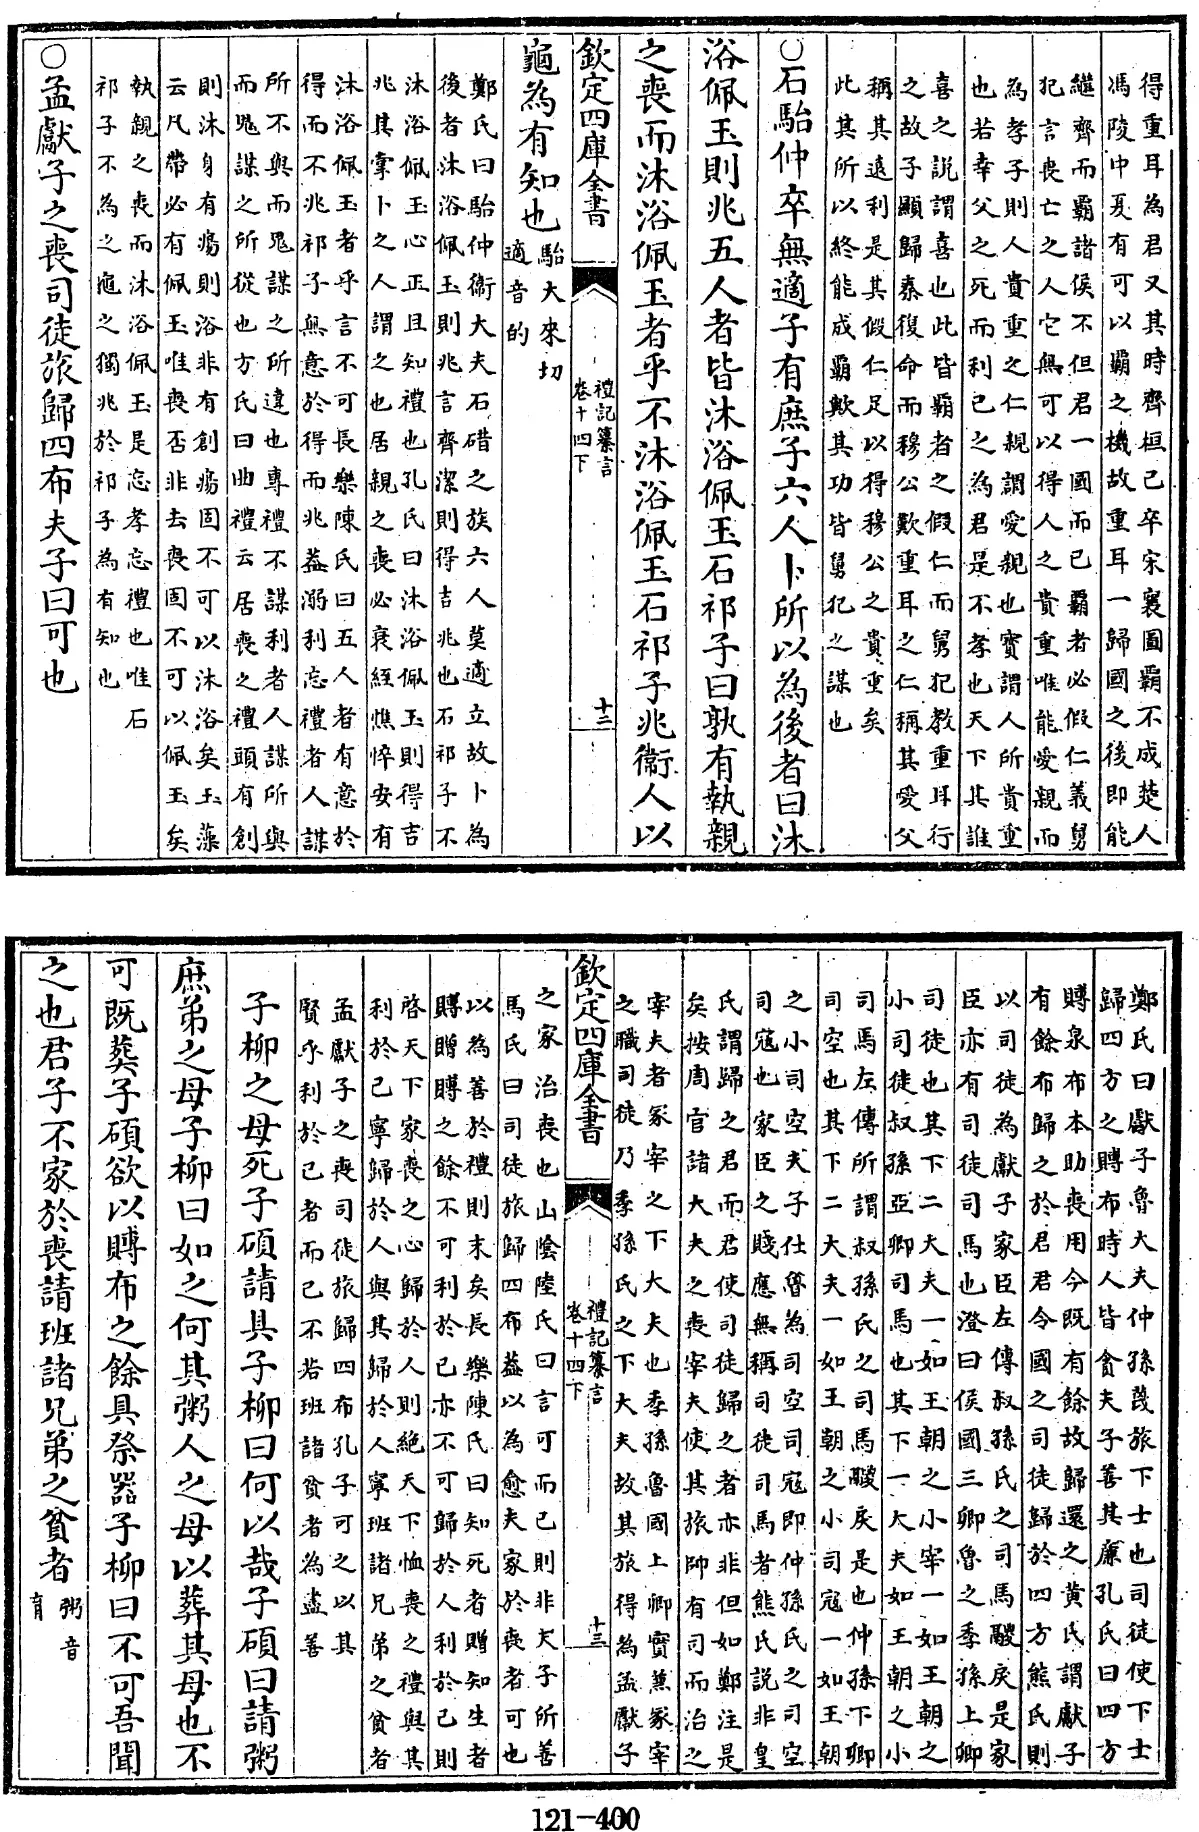 得重耳為君又其時齊桓已卒宋襄圖霸不成楚人
馮陵中夏有可以霸之機故重耳一歸國之後即能
繼齊而霸諸侯不但君一國而已霸者必假仁義舅
犯言喪亡之人它無可以得人之貴重唯能愛親而
為孝子則人貴重之仁親謂愛親也寳謂人所貴重
也若幸父之死而利己之為君是不孝也天下其誰
喜之説謂喜也此皆霸者之假仁而舅犯教重耳行
之故子顯歸秦復命而穆公歎重耳之仁稱其愛父
稱其遠利是其假仁足以得穆公之貴重矣
此其所以終能成霸歟其功皆舅犯之謀也
○石駘仲卒無適子有庶子六人卜所以為後者曰沐
浴佩玉則兆五人者皆沐浴佩玉石祁子曰孰有執親
之喪而沐浴佩玉者乎不沐浴佩玉石祁子兆衞人以
欽定四庫全書
禮記纂言
卷十四下
十二
龜為有知也
駘大來切
適音的
鄭氏曰駘仲衞大夫石碏之族六人莫適立故卜為
後者沐浴佩玉則兆言齊潔則得吉兆也石祁子不
沐浴佩玉心正且知禮也孔氏曰沐浴佩玉則得吉
兆其掌卜之人謂之也居親之喪必衰絰憔悴安有
沐浴佩玉者乎言不可長樂陳氏曰五人者有意於
得而不兆祁子無意於得而兆葢溺利忘禮者人謀
所不與而鬼謀之所違也專禮不謀利者人謀所與
而鬼謀之所從也方氏曰曲禮云居喪之禮頭有創
則沐身有瘍則浴非有創瘍固不可以沐浴矣玉藻
云凡帶必有佩玉唯喪否非去喪固不可以佩玉矣
執親之喪而沐浴佩玉是忘孝忘禮也唯石
祁子不為之龜之獨兆於祁子為有知也
○孟獻子之喪司徒旅歸四布夫子曰可也
鄭氏曰獻子魯大夫仲孫蔑旅下士也司徒使下士
歸四方之賻布時人皆貪夫子善其廉孔氏曰四方
賻泉布本助喪用今既有餘故歸還之黄氏謂獻子
有餘布歸之於君君令國之司徒歸於四方熊氏則
以司徒為獻子家臣左傳叔孫氏之司馬鬷戾是家
臣亦有司徒司馬也澄曰侯國三卿魯之季孫上卿
司徒也其下二大夫一如王朝之小宰一如王朝之
小司徒叔孫亞卿司馬也其下一大夫如王朝之小
司馬左傳所謂叔孫氏之司馬鬷戾是也仲孫下卿
司空也其下二大夫一如王朝之小司寇一如王朝
之小司空夫子仕魯為司空司寇即仲孫氏之司空
司寇也家臣之賤應無稱司徒司馬者熊氏説非皇
氏謂歸之君而君使司徒歸之者亦非但如鄭注是
矣按周官諸大夫之喪宰夫使其旅帥有司而治之
宰夫者冢宰之下大夫也季孫魯國上卿實兼冢宰
之職司徒乃季孫氏之下大夫故其旅得為孟獻子
欽定四庫全書
禮記纂言
卷十四下
十三
之家治喪也山陰陸氏曰言可而已則非夫子所善
馬氏曰司徒旅歸四布葢以為愈夫家於喪者可也
以為善於禮則末矣長樂陳氏曰知死者贈知生者
賻贈賻之餘不可利於己亦不可歸於人利於己則
啓天下家喪之心歸於人則絶天下恤喪之禮與其
利於己寧歸於人與其歸於人寧班諸兄弟之貧者
孟獻子之喪司徒旅歸四布孔子可之以其
賢乎利於己者而已不若班諸貧者為盡善
子柳之母死子碩請具子柳曰何以哉子碩曰請粥
庶弟之母子柳曰如之何其粥人之母以葬其母也不
可既葬子碩欲以賻布之餘具祭器子柳曰不可吾聞
之也君子不家於喪請班諸兄弟之貧者
粥音
育
121-400